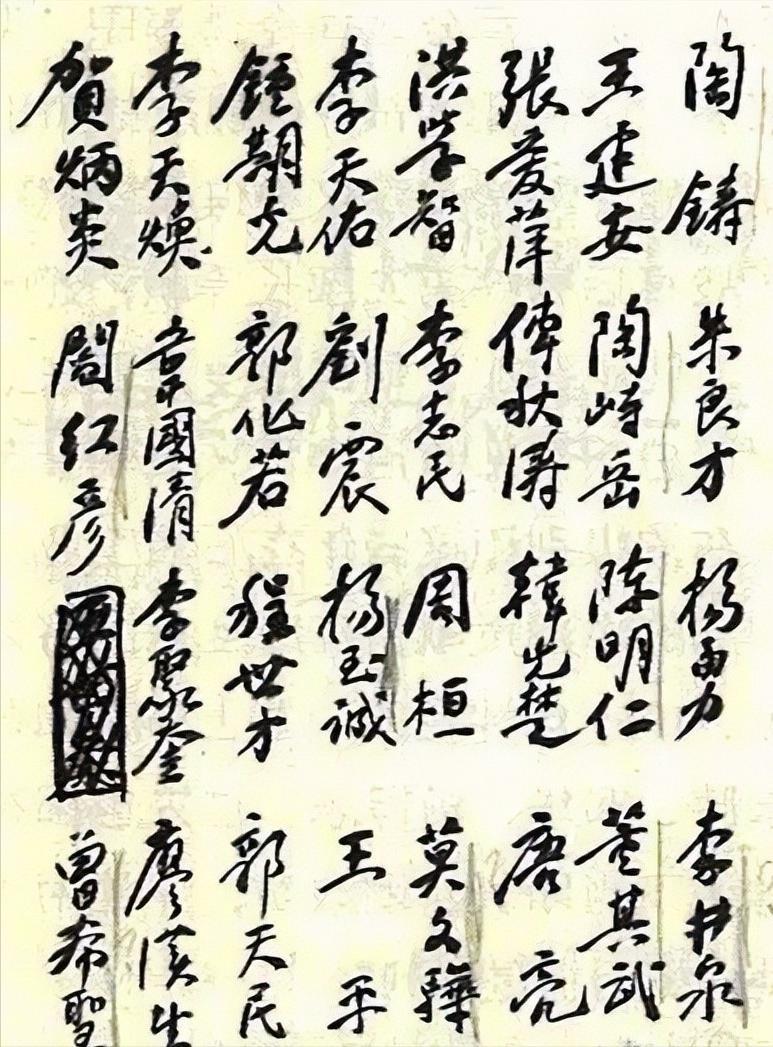 陶鑄 朱良才 楊勇力 李井泉
王建安 陶峙岳 陳明仁 董其武
張愛萍 傅秋濤 韓先楚 唐亮
洪學智 李志民 周桓 莫文驊
李天佑 劉震 楊至誠 王平
鍾期光 郭化若 程世才 郭天民
李天煥 韋國清 李聚奎 廖漢生
賀炳炎 閻红彦 曾希聖